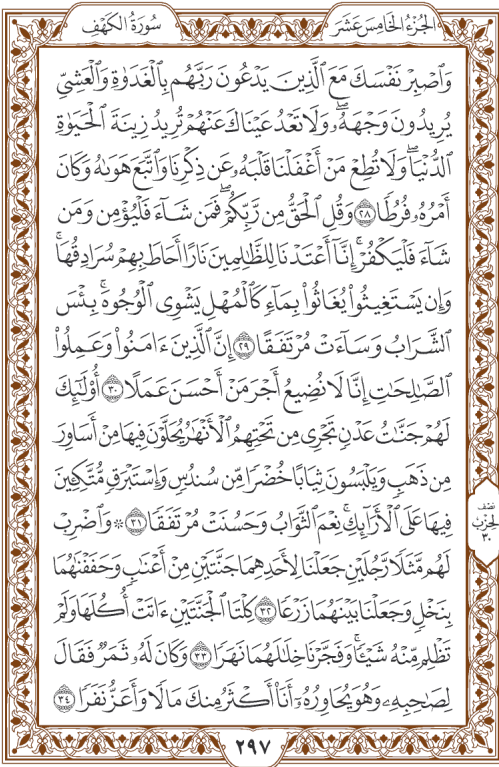 الجُزْءُ الخَامِسَ عَشَرَ
سُورَةُ الكَهْفِ
وَٱصۡبِرۡ نَفۡسَكَ مَعَ ٱلَّذِينَ يَدۡعُونَ رَبَّهُم بِٱلۡغَدَوٰةِ وَٱلۡعَشِيِّ
يُرِيدُونَ وَجۡهَهُۥۖ وَلَا تَعۡدُ عَيۡنَاكَ عَنۡهُمۡ تُرِيدُ زِينَةَ ٱلۡحَيَوٰةِ
ٱلدُّنۡيَاۖ وَلَا تُطِعۡ مَنۡ أَغۡفَلۡنَا قَلۡبَهُۥ عَن ذِكۡرِنَا وَٱتَّبَعَ هَوَىٰهُ وَكَانَ
أَمۡرُهُۥ فُرُطٗا ٢٨ وَقُلِ ٱلۡحَقُّ مِن رَّبِّكُمۡۖ فَمَن شَآءَ فَلۡيُؤۡمِن وَمَن
شَآءَ فَلۡيَكۡفُرۡۚ إِنَّآ أَعۡتَدۡنَا لِلظَّٰلِمِينَ نَارًا أَحَاطَ بِهِمۡ سُرَادِقُهَاۚ
وَإِن يَسۡتَغِيثُواْ يُغَاثُواْ بِمَآءٖ كَٱلۡمُهۡلِ يَشۡوِي ٱلۡوُجُوهَۚ بِئۡسَ
ٱلشَّرَابُ وَسَآءَتۡ مُرۡتَفَقًا ٢٩ إِنَّ ٱلَّذِينَ ءَامَنُواْ وَعَمِلُواْ
ٱلصَّٰلِحَٰتِ إِنَّا لَا نُضِيعُ أَجۡرَ مَنۡ أَحۡسَنَ عَمَلًا ٣٠ أُوْلَٰٓئِكَ
لَهُمۡ جَنَّٰتُ عَدۡنٖ تَجۡرِي مِن تَحۡتِهِمُ ٱلۡأَنۡهَٰرُ يُحَلَّوۡنَ فِيهَا مِنۡ أَسَاوِرَ
مِن ذَهَبٖ وَيَلۡبَسُونَ ثِيَابًا خُضۡرٗا مِّن سُندُسٖ وَإِسۡتَبۡرَقٖ مُّتَّكِـِٔينَ
فِيهَا عَلَى ٱلۡأَرَآئِكِۚ نِعۡمَ ٱلثَّوَابُ وَحَسُنَتۡ مُرۡتَفَقٗا ٣١ ۞ وَٱضۡرِبۡ
لَهُم مَّثَلٗا رَّجُلَيۡنِ جَعَلۡنَا لِأَحَدِهِمَا جَنَّتَيۡنِ مِنۡ أَعۡنَٰبٖ وَحَفَفۡنَٰهُمَا
بِنَخۡلٖ وَجَعَلۡنَا بَيۡنَهُمَا زَرۡعٗا ٣٢ كِلۡتَا ٱلۡجَنَّتَيۡنِ ءَاتَتۡ أُكُلَهَا وَلَمۡ
تَظۡلِم مِّنۡهُ شَيۡـٔٗاۚ وَفَجَّرۡنَا خِلَٰلَهُمَا نَهَرٗا ٣٣ وَكَانَ لَهُۥ ثَمَرٞ فَقَالَ
لِصَٰحِبِهِۦ وَهُوَ يُحَاوِرُهُۥٓ أَنَا۠ أَكۡثَرُ مِنكَ مَالٗا وَأَعَزُّ نَفَرٗا ٣٤
نصف
الحزب
٣٠
٢٩٧